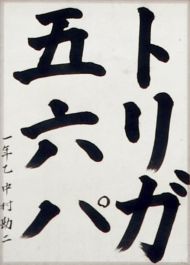 トリガ
五六パ
一年乙 中村勘二